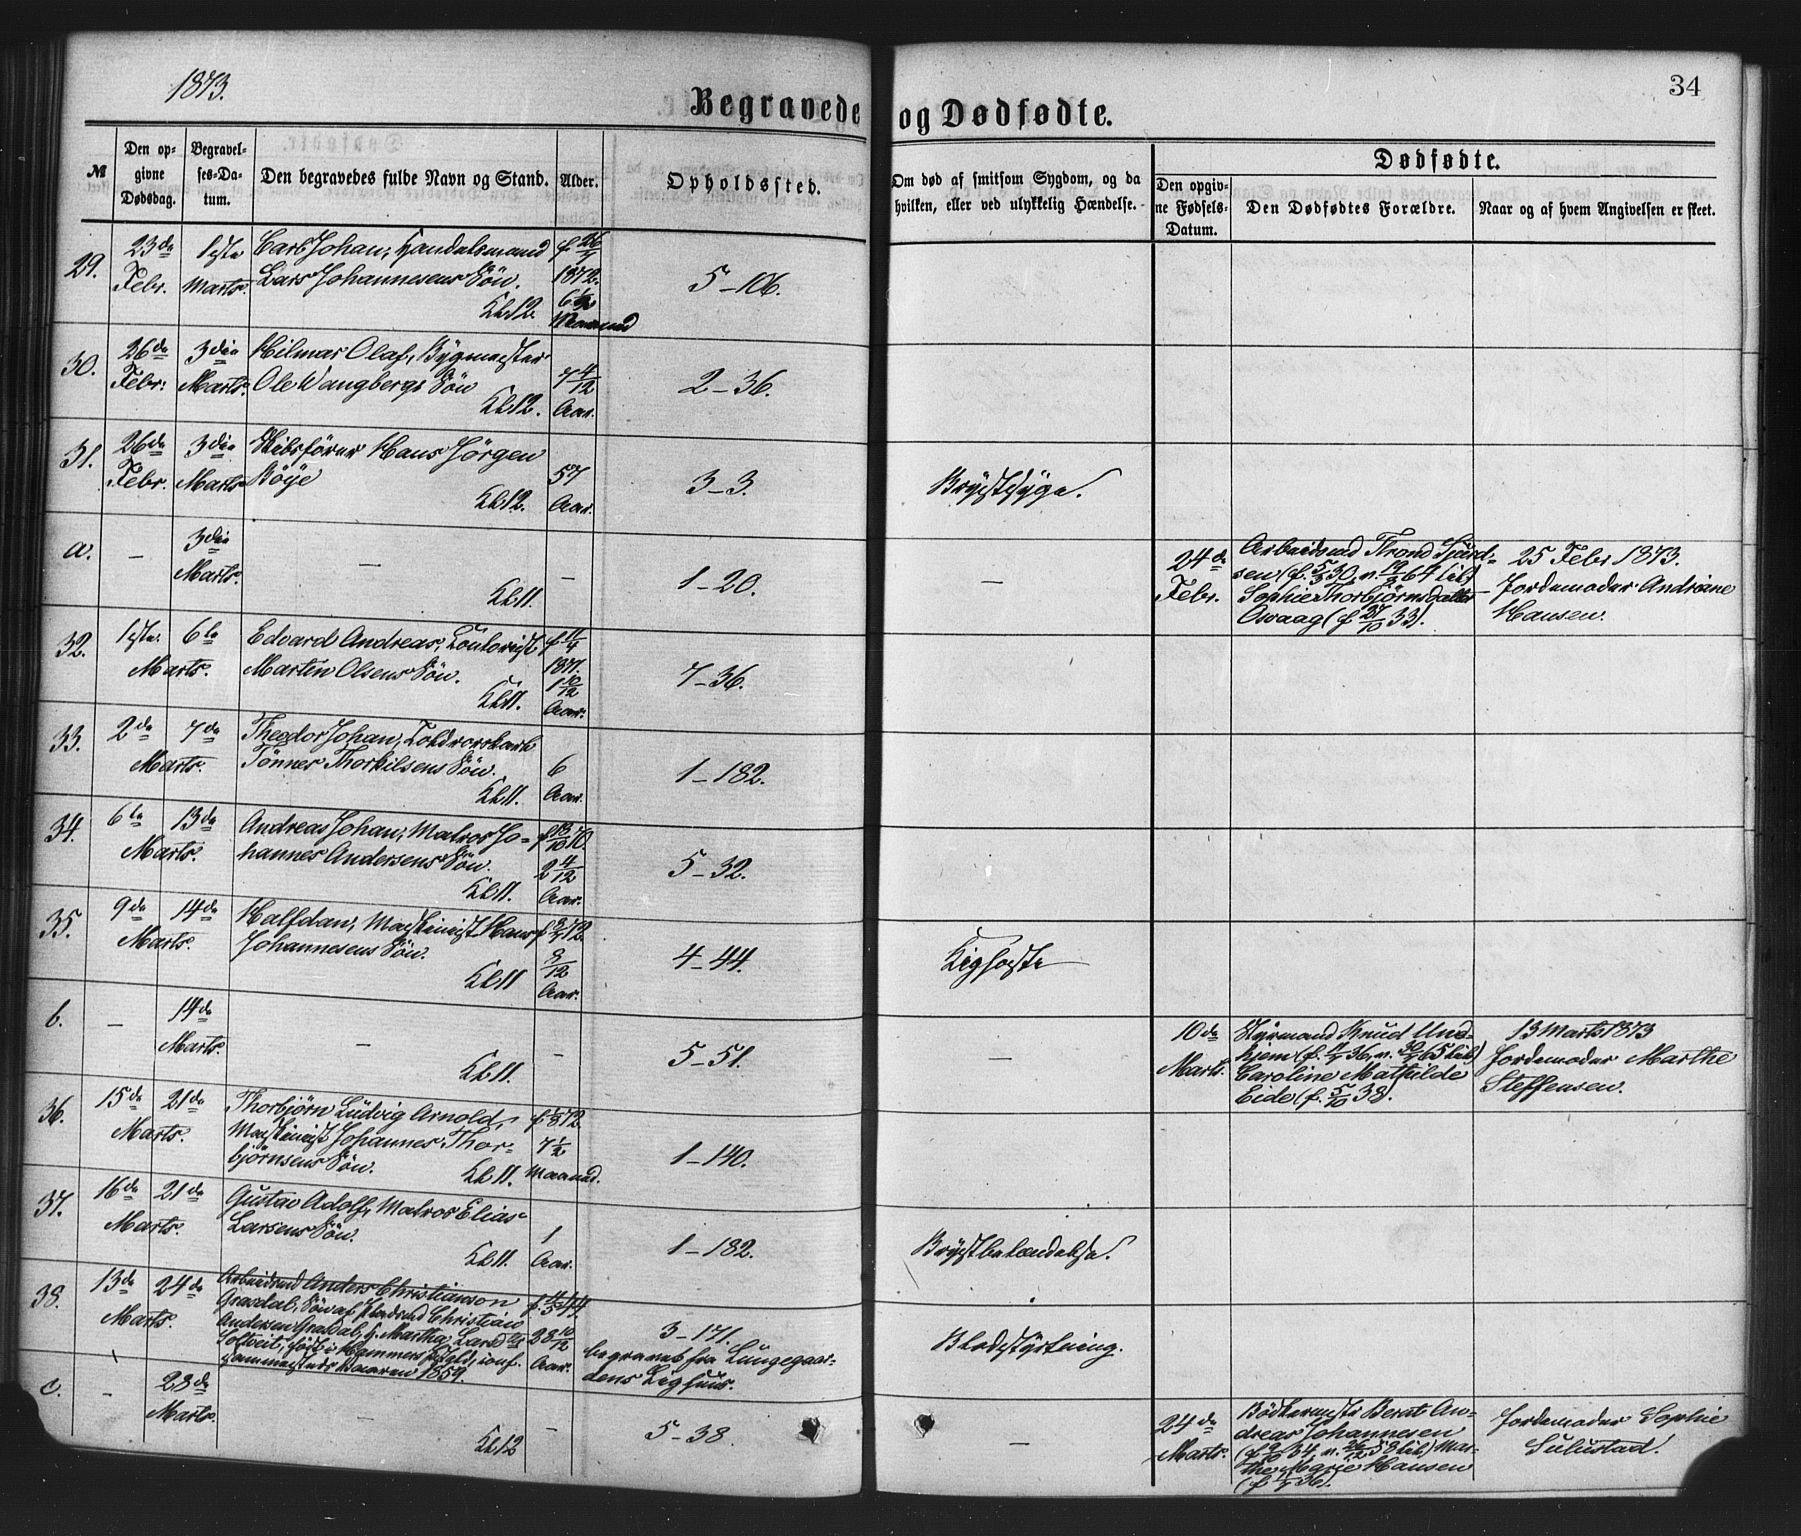 1873.
34
Begravede og Dødfødte.
№
Den opgivne Dødsdag.
Begravelses-Datum.
Den begravedes fulde Navn og Stand.
Alder.
Opholdssted.
Om død af smitsom Sygdom, og da hvilken, eller ved ulykkelig Hændelse.
Dødfødte.
Den opgivne Fødsels-Datum.
Den Dødfødtes Forældre.
Naar og af hvem Angivelsen er skeet.
29. 23de Febr. 1ste Marts.
Carl Johan, Handelsmand
Lars Johannesens Søn.
Kl. 12.
1872.
Maaned
5-106.
30. 26de Febr. 3die Marts.
Hilmar Olaf, Bygmester
Ole Wangbergs Søn
Kl. 12.
7 4/12 Aar.
2-36.
31. 26de Febr. 3die Marts
Skibsfører Hans Jørgen
Bøye
Kl. 12.
57 Aar.
3-3.
Brystsyge.
a. - 3die Marts. -
Kl. 11.
-
1-20.
-
24de Febr.
Arbeidsmd Trond Sjurd-
sen (f. 5/3 30, v. 19/3 64 til)
Sophie Thorbjørnsdatter
Osvaag (f. 27/10 33).
25 Febr 1873.
Jordemoder Andrine
Hansen.
32. 1ste 6te Marts.
Edvard Andreas, Contorist
Martin Olsens Søn.
Kl. 11.
f. 11/4
1871.
1 10/12
Aar.
7-36.
33. 2de 7de Marts.
Theodor Johan, Toldrorskarl
Tønnes Thorkilsens Søn.
Kl. 11.
6 Aar.
1-182.
34. 6te 13de Marts.
Andreas Johan, Matros Jo-
hannes Andersens Søn.
Kl. 11.
f. 13/10 70.
2 4/12
Aar.
5-32.
35. 9de 14de Marts.
Halfdan, Maskinist Hans
Johannesens Søn.
Kl. 11
9/12
Aar.
4-44.
Kighoste
b. - 14de Marts. -
Kl. 11.
-
5-51.
-
10de Marts.
Styrmand Knud Und-
hjem
Caroline Mathilde
Eide (f. 5/10 38.
13 Marts 1873
Jordemoder Marthe
Steffensen.
36. 15de 21de Marts.
Thorbjørn Ludvig Arnold,
Maskinist Johannes Thor-
bjørnsens Søn.
Kl. 11.
f. 1/8 72.
7 1/2
Maaned.
1-140.
37. 16de 21de Marts.
Gustav Adolf, Matros Elias
Larsens Søn.
Kl. 11.
1 Aar.
1-182.
Brystbetændelse.
38. 13de 24de Marts.
Arbeidsmd Anders Christianson
Grasdal, Søn af Pladsmd Christian
Andersen Grasdal, g. Martha Larsd.
Toftveit, født i Hammers Præstgjeld, conf.
sammesteds Vaaren 1859.
f. 4/5 44.
28 10/12
Aar.
3-171.
begravet fra Lungegaar-
dens Lighuus.
Blodstyrtning.
c. - 28de Marts. -
Kl. 12
-
5-38.
-
24de Marts.
Bødkermester Berat An-
dreas Johannesen
Mar-
the Marie Hansen
Jordemoder Sophie
Sulustad.